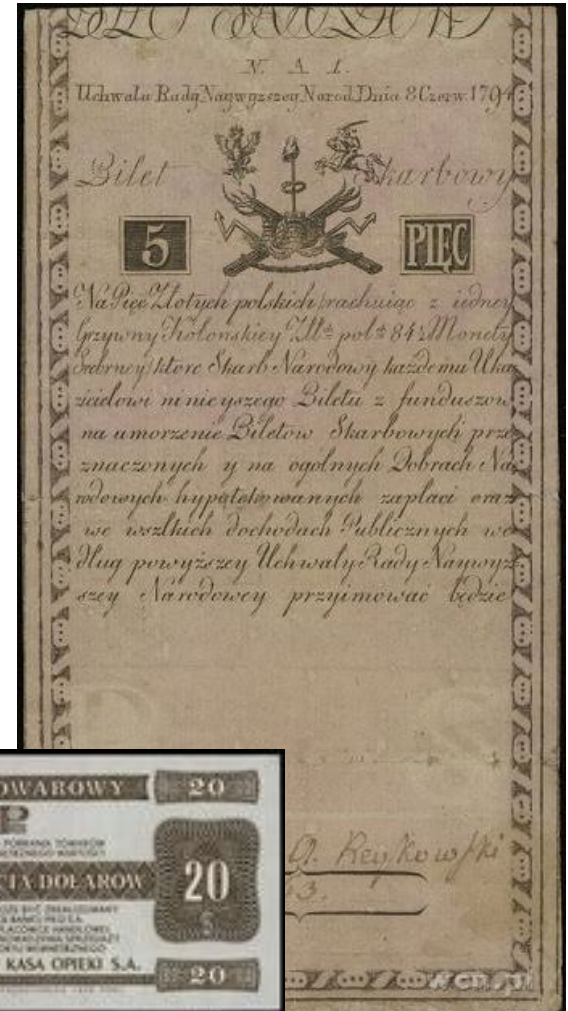 N. A 1.
Uchwała Rady Naywyzszey Narod. Dnia 8 Czerw. 1794
Bilet Skarbowy
5 PIĘC
Na Pięc Złotych polskich rachuiąc z iedney
Grzywny Kolonskiey Monety
Srebrney ktore Skarb Narodowy każdemu Uka
zicielowi ninieyszego Biletu z funduszow
na umorzenie Biletow Skarbowych prze
znaczonych y na ogolnych Dobrach Na
rodowych hypotekowanych zapłaci oraz
we wszlkich dochodach Publicznych we
dług powyższey Uchwały Rady Naywyż
szey Narodowey przyimować będzie
A. Reykowski
OWAROWY 20
CIA DOLARÓW 20
KASA OPIEKI S.A. 20